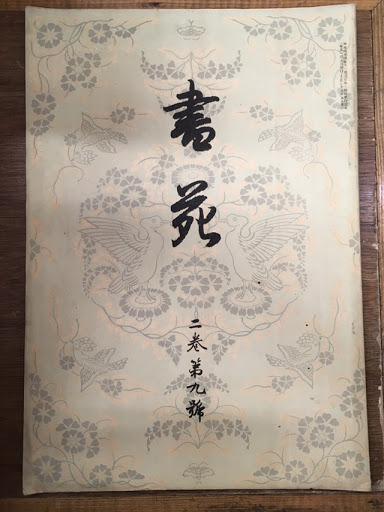 書苑
二卷第九號